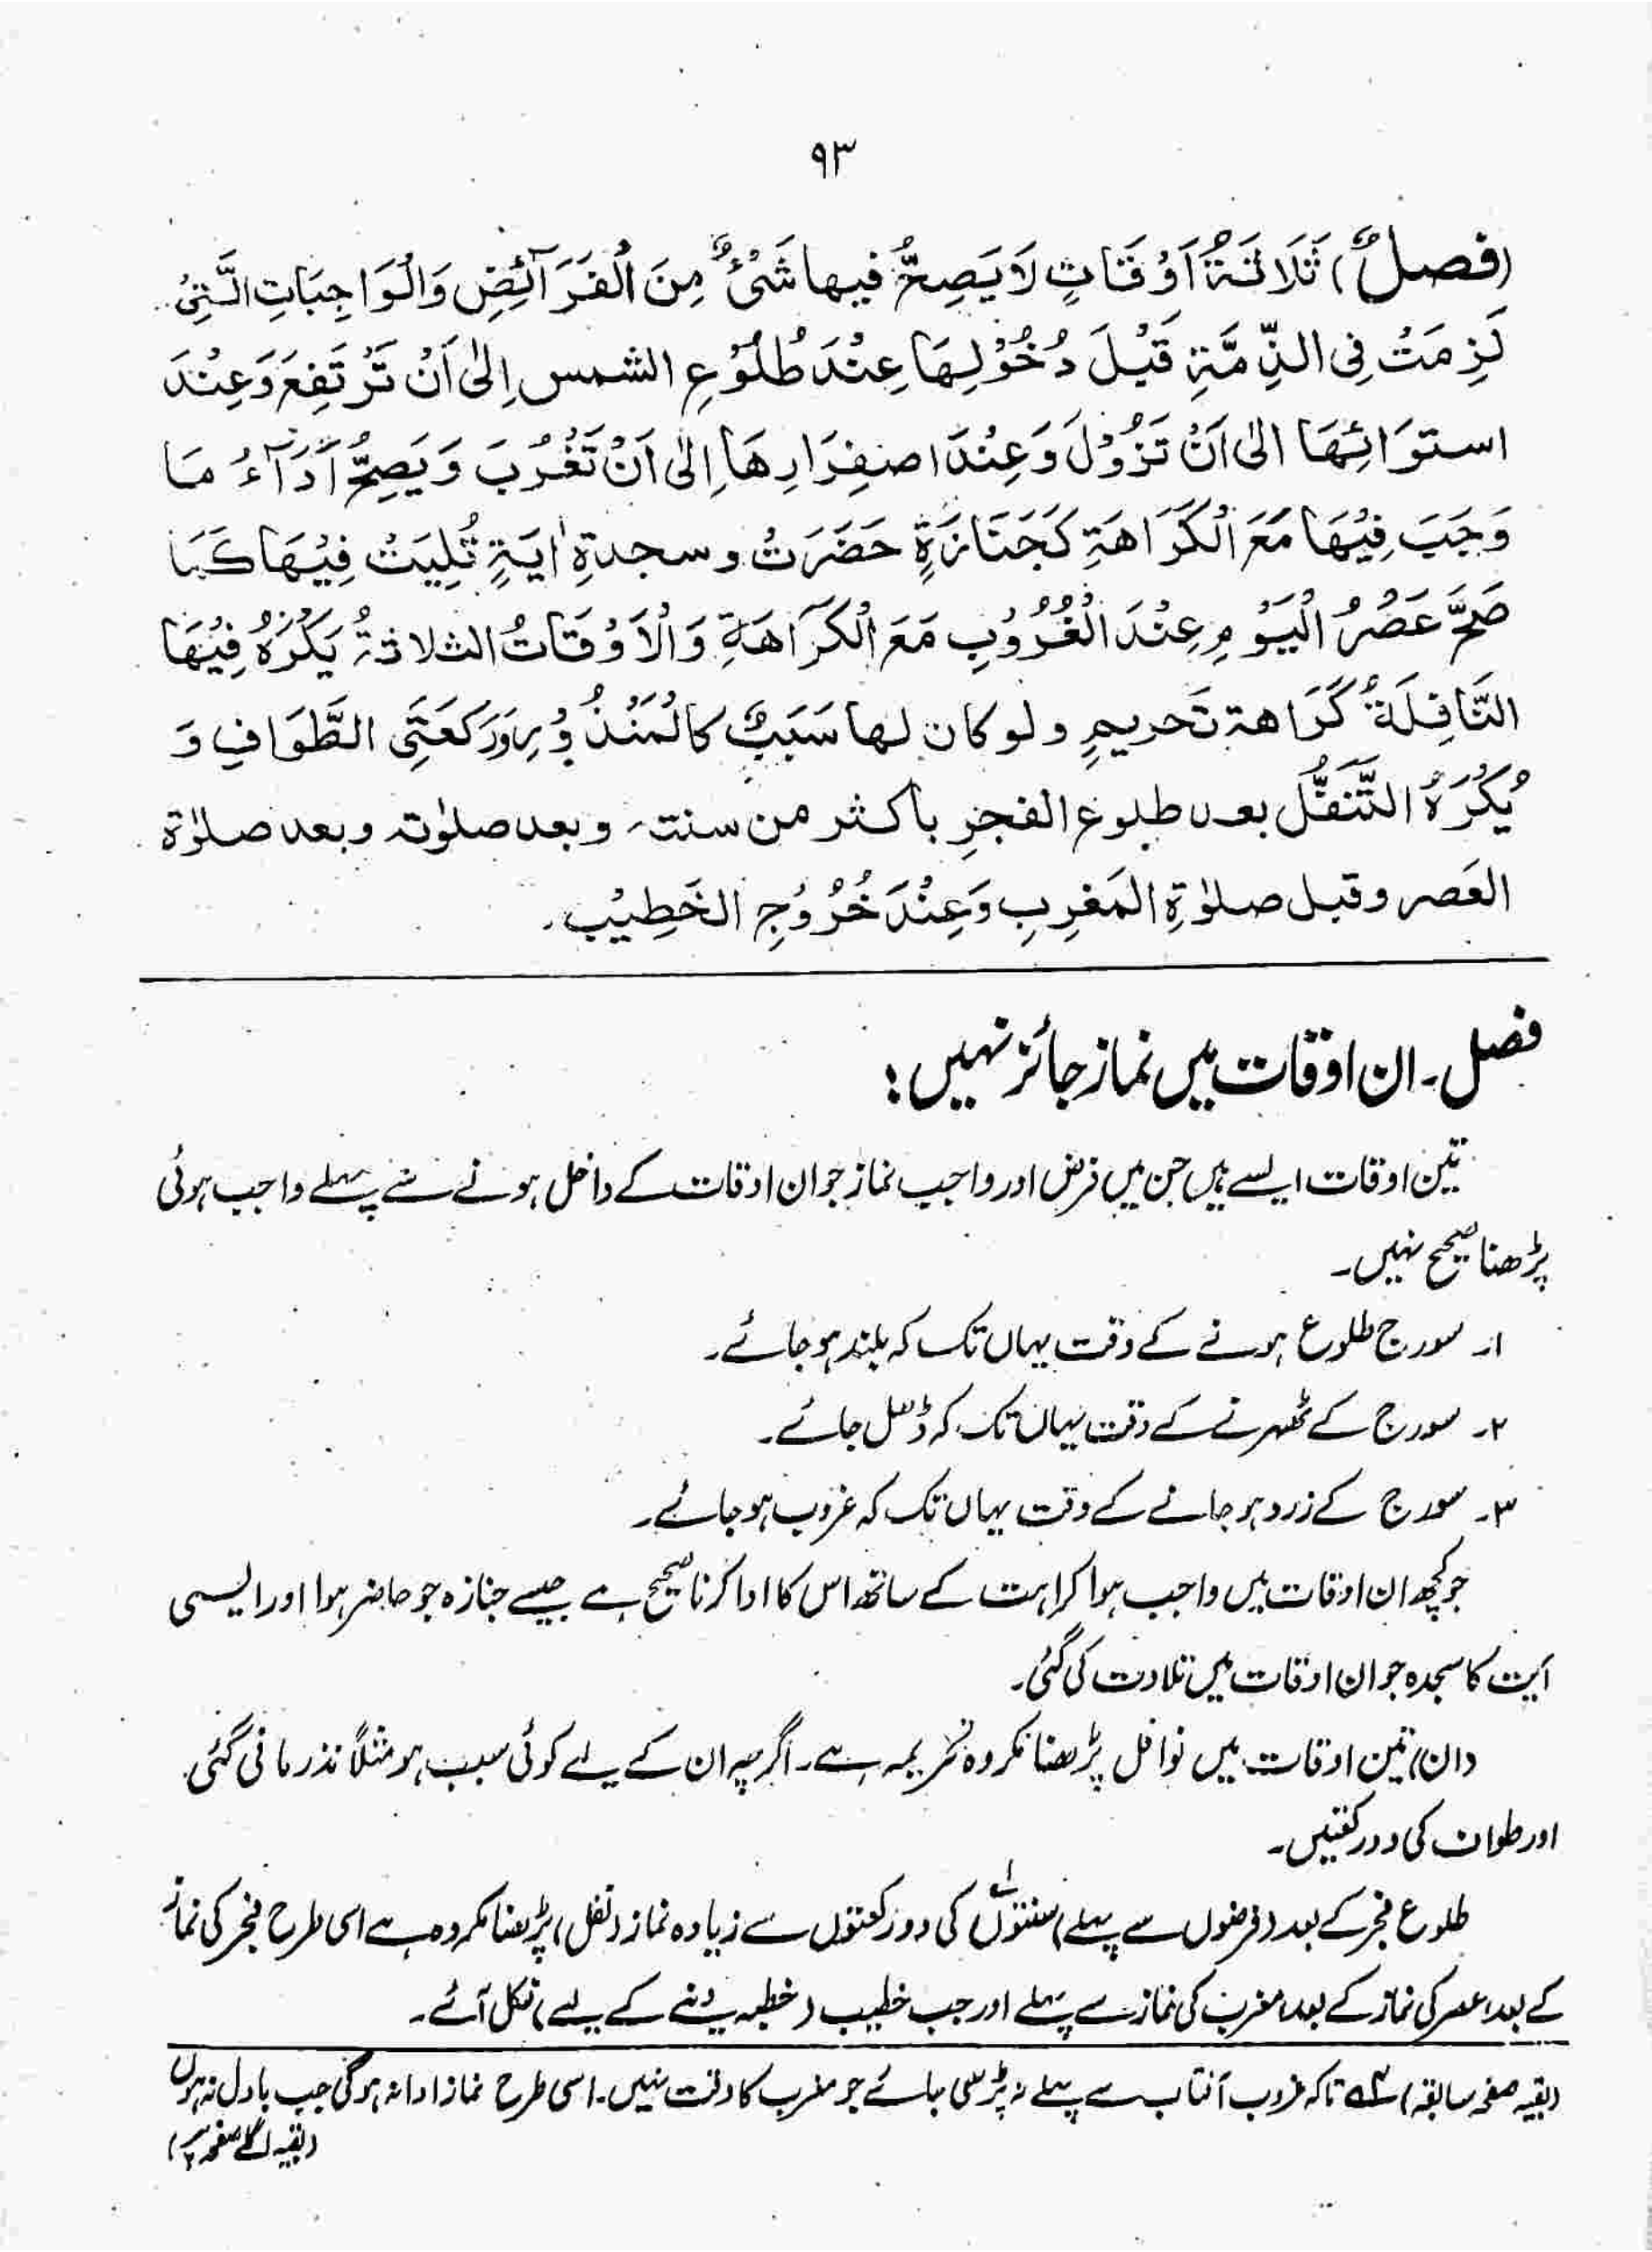 ٩٣
(فصلٌ) ثَلَاثَةُ اَوْقَاتٍ لَا يَصِحُّ فيها شَىْءٌ مِنَ الْفَرَآئِضِ وَالْوَاجِبَاتِ الَّتِىْ
لَزِمَتْ فِى الذِّمَّةِ قَبْلَ دُخُوْلِهَا عِنْدَ طُلُوْعِ الشمس اِلٰى اَنْ تَرْتَفِعَ وَعِنْدَ
استوَائِهَا الٰى اَنْ تَزُوْلَ وَعِنْدَ اصفِرَارِهَا اِلٰى اَنْ تَغْرُبَ وَيَصِحُّ اَدَآءُ مَا
وَجَبَ فِيْهَا مَعَ الْكَرَاهَةِ كَجَنَازَةٍ حَضَرَتْ وسجدةِ اٰيَةٍ تُلِيَتْ فِيْهَا كَمَا
صَحَّ عَصْرُ الْيَوْمِ عِنْدَ الْغُرُوْبِ مَعَ الْكَرَآهَةِ وَالْاَوْقَاتُ الثلاثةُ يَكْرَهُ فِيْهَا
النَّافِلَةُ كَرَاهة تَحريمٍ ولو كان لها سَبَبٌ كالْمَنْذُوْرِ وَرَكعَتَىِ الطَّوَافِ وَ
يُكْرَهُ التَّنَفُّل بعد طلوع الفجرِ بأكثر من سنته وبعد صلوٰته وبعد صلوٰة
العَصر وقبل صلوٰةِ المَغرِبِ وَعِنْدَ خُرُوْجِ الخَطِيْب۔
فصل۔ ان اوقات میں نماز جائز نہیں:
تین اوقات ایسے ہیں جن میں فرض اور واجب نماز جو ان اوقات کے داخل ہونے سے پہلے واجب ہوئی
پڑھنا صحیح نہیں۔
۱۔ سورج طلوع ہونے کے وقت یہاں تک کہ بلند ہو جائے۔
۲۔ سورج کے ٹھہرنے کے وقت یہاں تک کہ ڈھل جائے۔
۳۔ سورج کے زرد ہو جانے کے وقت یہاں تک کہ غروب ہو جائے۔
جو کچھ ان اوقات میں واجب ہوا کراہت کے ساتھ اس کا ادا کرنا صحیح ہے جیسے جنازہ جو حاضر ہوا اور ایسی
آیت کا سجدہ جو ان اوقات میں تلاوت کی گئی۔
(ان) تین اوقات میں نوافل پڑھنا مکروہ تحریمہ ہے۔ اگرچہ ان کے لیے کوئی سبب ہو مثلاً نذر مانی گئی
اور طواف کی دو رکعتیں۔
طلوع فجر کے بعد (فرضوں سے پہلے) سنتوں کی دو رکعتوں سے زیادہ نماز (نفل) پڑھنا مکروہ ہے اسی طرح فجر کی نماز
کے بعد، عصر کی نماز کے بعد، مغرب کی نماز سے پہلے اور جب خطیب (خطبہ دینے کے لیے) نکل آئے۔
(بقیہ صفحہ سابقہ) تاکہ غروب آفتاب سے پہلے نہ پڑھی جائے جو مغرب کا وقت نہیں۔ اسی طرح نماز ادا نہ ہوگی جب بادل نہ ہوں
(بقیہ اگلے صفحہ پر)